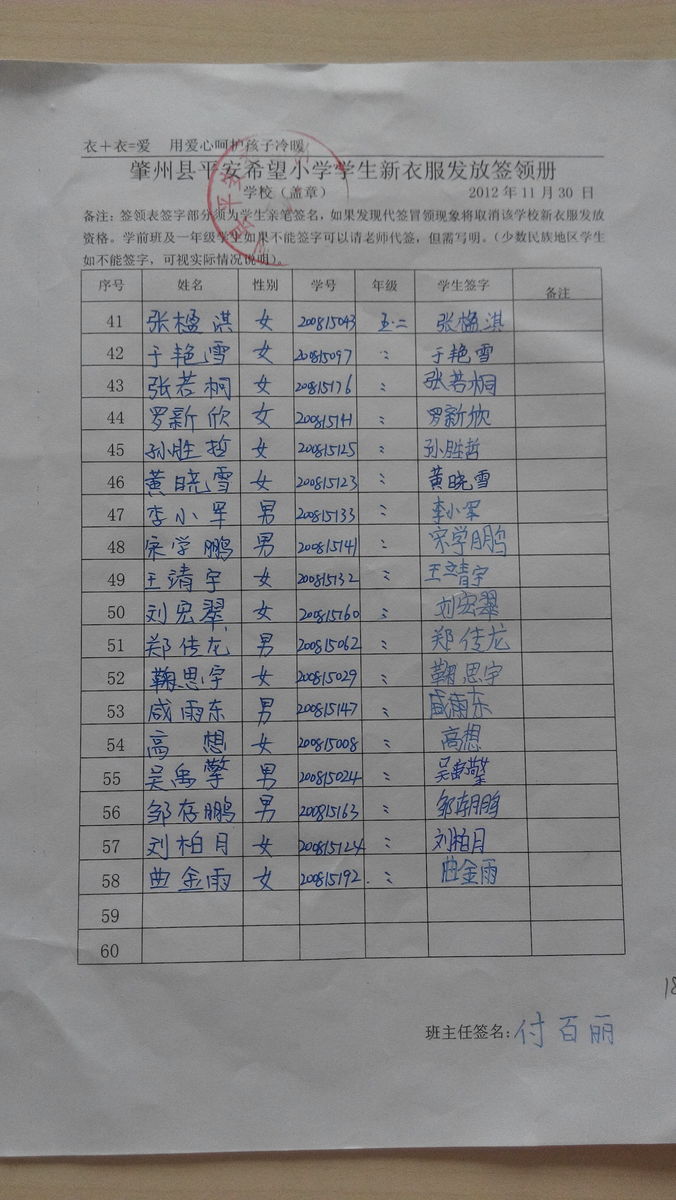 衣+衣=爱 用爱心呵护孩子冷暖
肇州县平安希望小学学生新衣服发放签领册
学校（盖章） 2012 年 11 月 30 日
备注：签领表签字部分须为学生亲笔签名，如果发现代签冒领现象将取消该学校新衣服发放
资格。学前班及一年级学生如果不能签字可以请老师代签，但需写明。（少数民族地区学生
如不能签字，可视实际情况说明）。
序号 姓名 性别 学号 年级 学生签字 备注
41 张楹淇 女 200815043 五.二 张楹淇
42 于艳雪 女 200815097 〃 于艳雪
43 张若桐 女 200815176 〃 张若桐
44 罗新欣 女 200815141 〃 罗新欣
45 孙胜哲 女 200815125 〃 孙胜哲
46 黄晓雪 女 200815123 〃 黄晓雪
47 李小军 男 200815133 〃 李小军
48 宋学鹏 男 200815141 〃 宋学鹏
49 王靖宇 女 200815132 〃 王靖宇
50 刘宏翠 女 200815160 〃 刘宏翠
51 郑传龙 男 200815062 〃 郑传龙
52 鞠思宇 女 200815029 〃 鞠思宇
53 咸雨东 男 200815147 〃 咸雨东
54 高想 女 200815008 〃 高想
55 吴禹擎 男 200815024 〃 吴禹擎
56 邹存鹏 男 200815163 〃 邹存鹏
57 刘柏月 女 200815124 〃 刘柏月
58 曲金雨 女 200815192 〃 曲金雨
59
60
18
班主任签名：付百丽